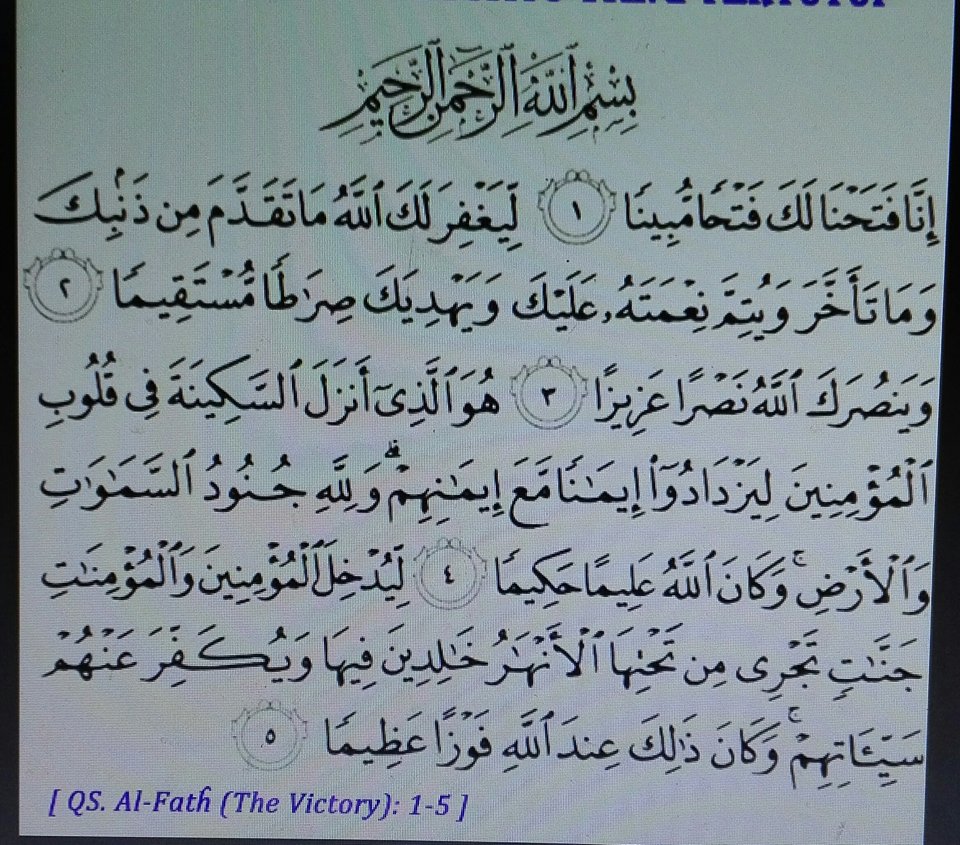 بِسْمِ ٱللَّهِ ٱلرَّحْمَٰنِ ٱلرَّحِيمِ
إِنَّا فَتَحْنَا لَكَ فَتْحًا مُّبِينًا ١ لِّيَغْفِرَ لَكَ ٱللَّهُ مَا تَقَدَّمَ مِن ذَنۢبِكَ
وَمَا تَأَخَّرَ وَيُتِمَّ نِعْمَتَهُۥ عَلَيْكَ وَيَهْدِيَكَ صِرَٰطًا مُّسْتَقِيمًا ٢
وَيَنصُرَكَ ٱللَّهُ نَصْرًا عَزِيزًا ٣ هُوَ ٱلَّذِىٓ أَنزَلَ ٱلسَّكِينَةَ فِى قُلُوبِ
ٱلْمُؤْمِنِينَ لِيَزْدَادُوٓا۟ إِيمَٰنًا مَّعَ إِيمَٰنِهِمْ ۗ وَلِلَّهِ جُنُودُ ٱلسَّمَٰوَٰتِ
وَٱلْأَرْضِ ۚ وَكَانَ ٱللَّهُ عَلِيمًا حَكِيمًا ٤ لِّيُدْخِلَ ٱلْمُؤْمِنِينَ وَٱلْمُؤْمِنَٰتِ
جَنَّٰتٍ تَجْرِى مِن تَحْتِهَا ٱلْأَنْهَٰرُ خَٰلِدِينَ فِيهَا وَيُكَفِّرَ عَنْهُمْ
سَيِّـَٔاتِهِمْ ۚ وَكَانَ ذَٰلِكَ عِندَ ٱللَّهِ فَوْزًا عَظِيمًا ٥
[ QS. Al-Fatĥ (The Victory): 1-5 ]